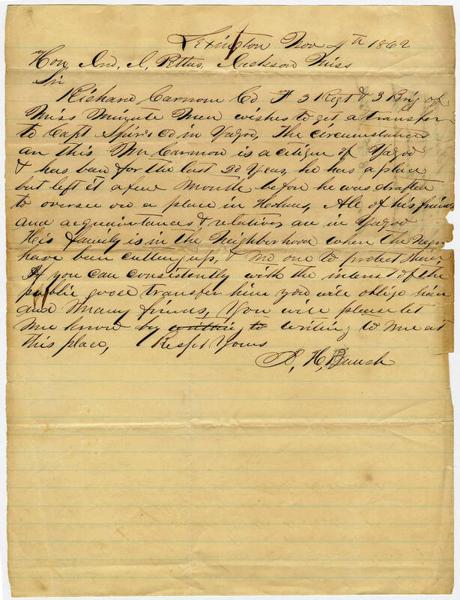 Lexington Nov 9th 1862
Hon. Jno. J. Pettus, Jackson Miss
Sir
Richard Carmon Co F 3 Regt & 3 Brig of
Miss Minute Men wishes to get a transfer
to Capt Co in Yazoo, The circumstances
are this Mr Carmon is a citizen of Yazoo
& has been for the last 20 Years, he has a place
but left it a few Months before he was drafted
to oversee on a place in Holmes, All of his friends
and acquaintances & relatives are in Yazoo
His family is in the Neighborhood where the Negroes
have been cutting up, & no one to protect them,
If you can consistently with the interest of the
public good transfer him you will oblige him
and Many friends, You will please let
Me know by writing to Me at
this place, Respt Yours
H,